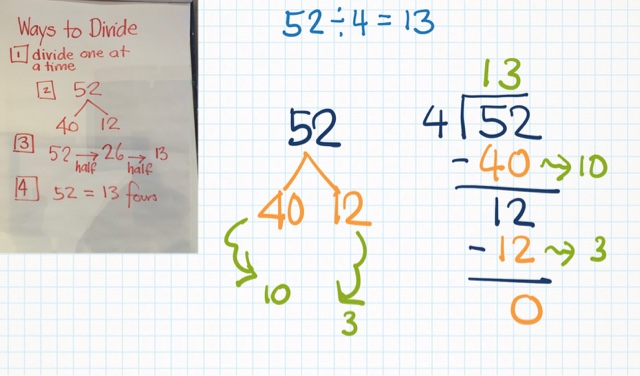 Ways to Divide
1 divide one at
a time
2 52
40 12
3 52 → 26 → 13
half half
4 52 = 13 fours
52÷4=13
52
40 12
10
3
13
4 52
- 40 → 10
12
- 12 → 3
0